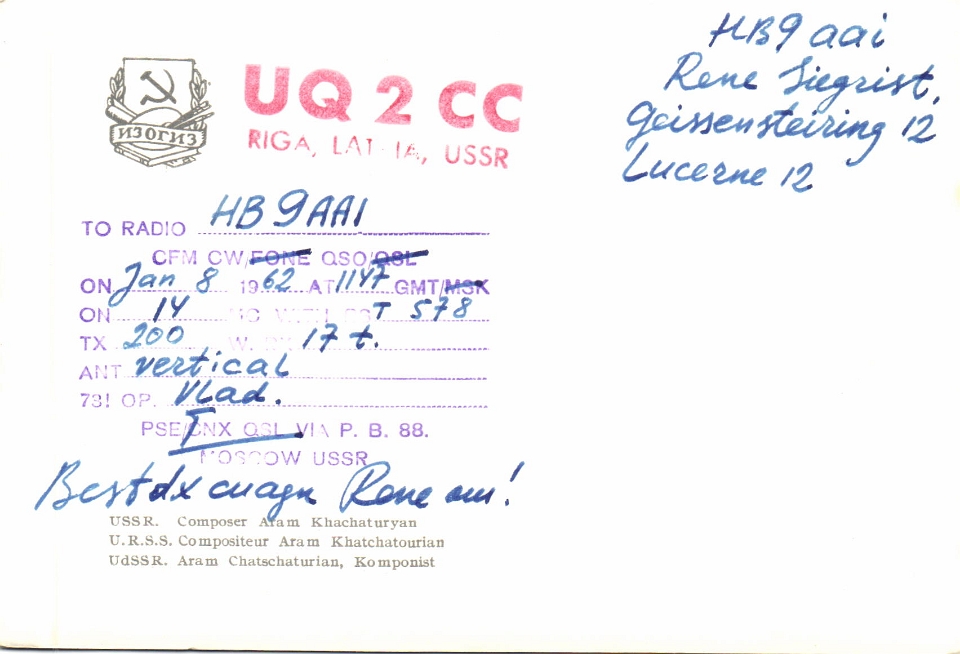 HB9aai
Rene Siegrist,
Geissensteiring 12
Lucerne 12
ИЗОГИЗ
UQ 2 CC
RIGA, LAT IA, USSR
TO RADIO HB9AAI
CFM CW/FONE QSO/QSL
ON Jan 8 1962 AT 1147 GMT/MSK
ON 14 MC WITH RST 578
TX 200 W. RX 17 t.
ANT vertical
73! OP. Vlad.
PSE/TNX QSL VIA P. B. 88.
MOSCOW USSR
Best dx cuagn Rene om!
USSR. Composer Aram Khachaturyan
U.R.S.S. Compositeur Aram Khatchatourian
UdSSR. Aram Chatschaturian, Komponist